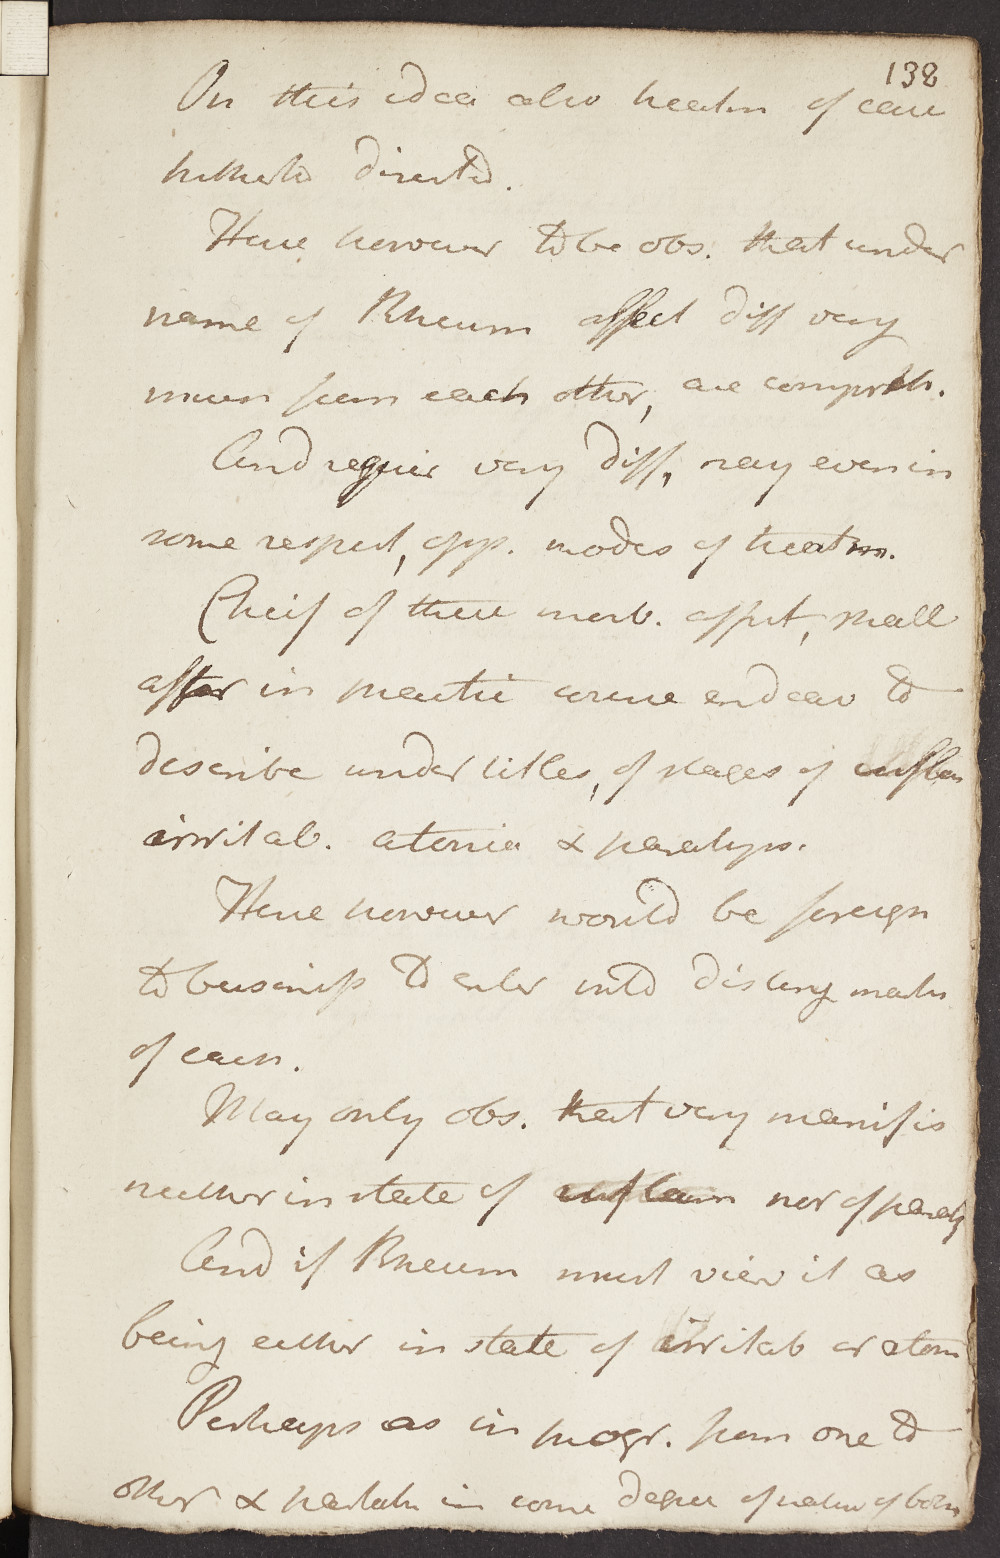 138
On this idea also treatm of case
hitherto directed.
Here however to be obs. that under
name of Rheum affect diff very
much from each other, are compreh.
And requir very diff, nay even in
some respect, opp. modes of treatm.
Cheif of these morb. affect, shall
after in practic course endeav to
describe under titles, of stages of inflam
irritab. atonia & paralys.
Here however would be foreign
to business to enter into disting marks
of each.
May only obs. that very manif is
neither in state of inflam nor of paraly
And if Rheum must view it as
being either in state of irritab or aton
Perhaps as in progr. from one to
other & partak in some degree of natur of both